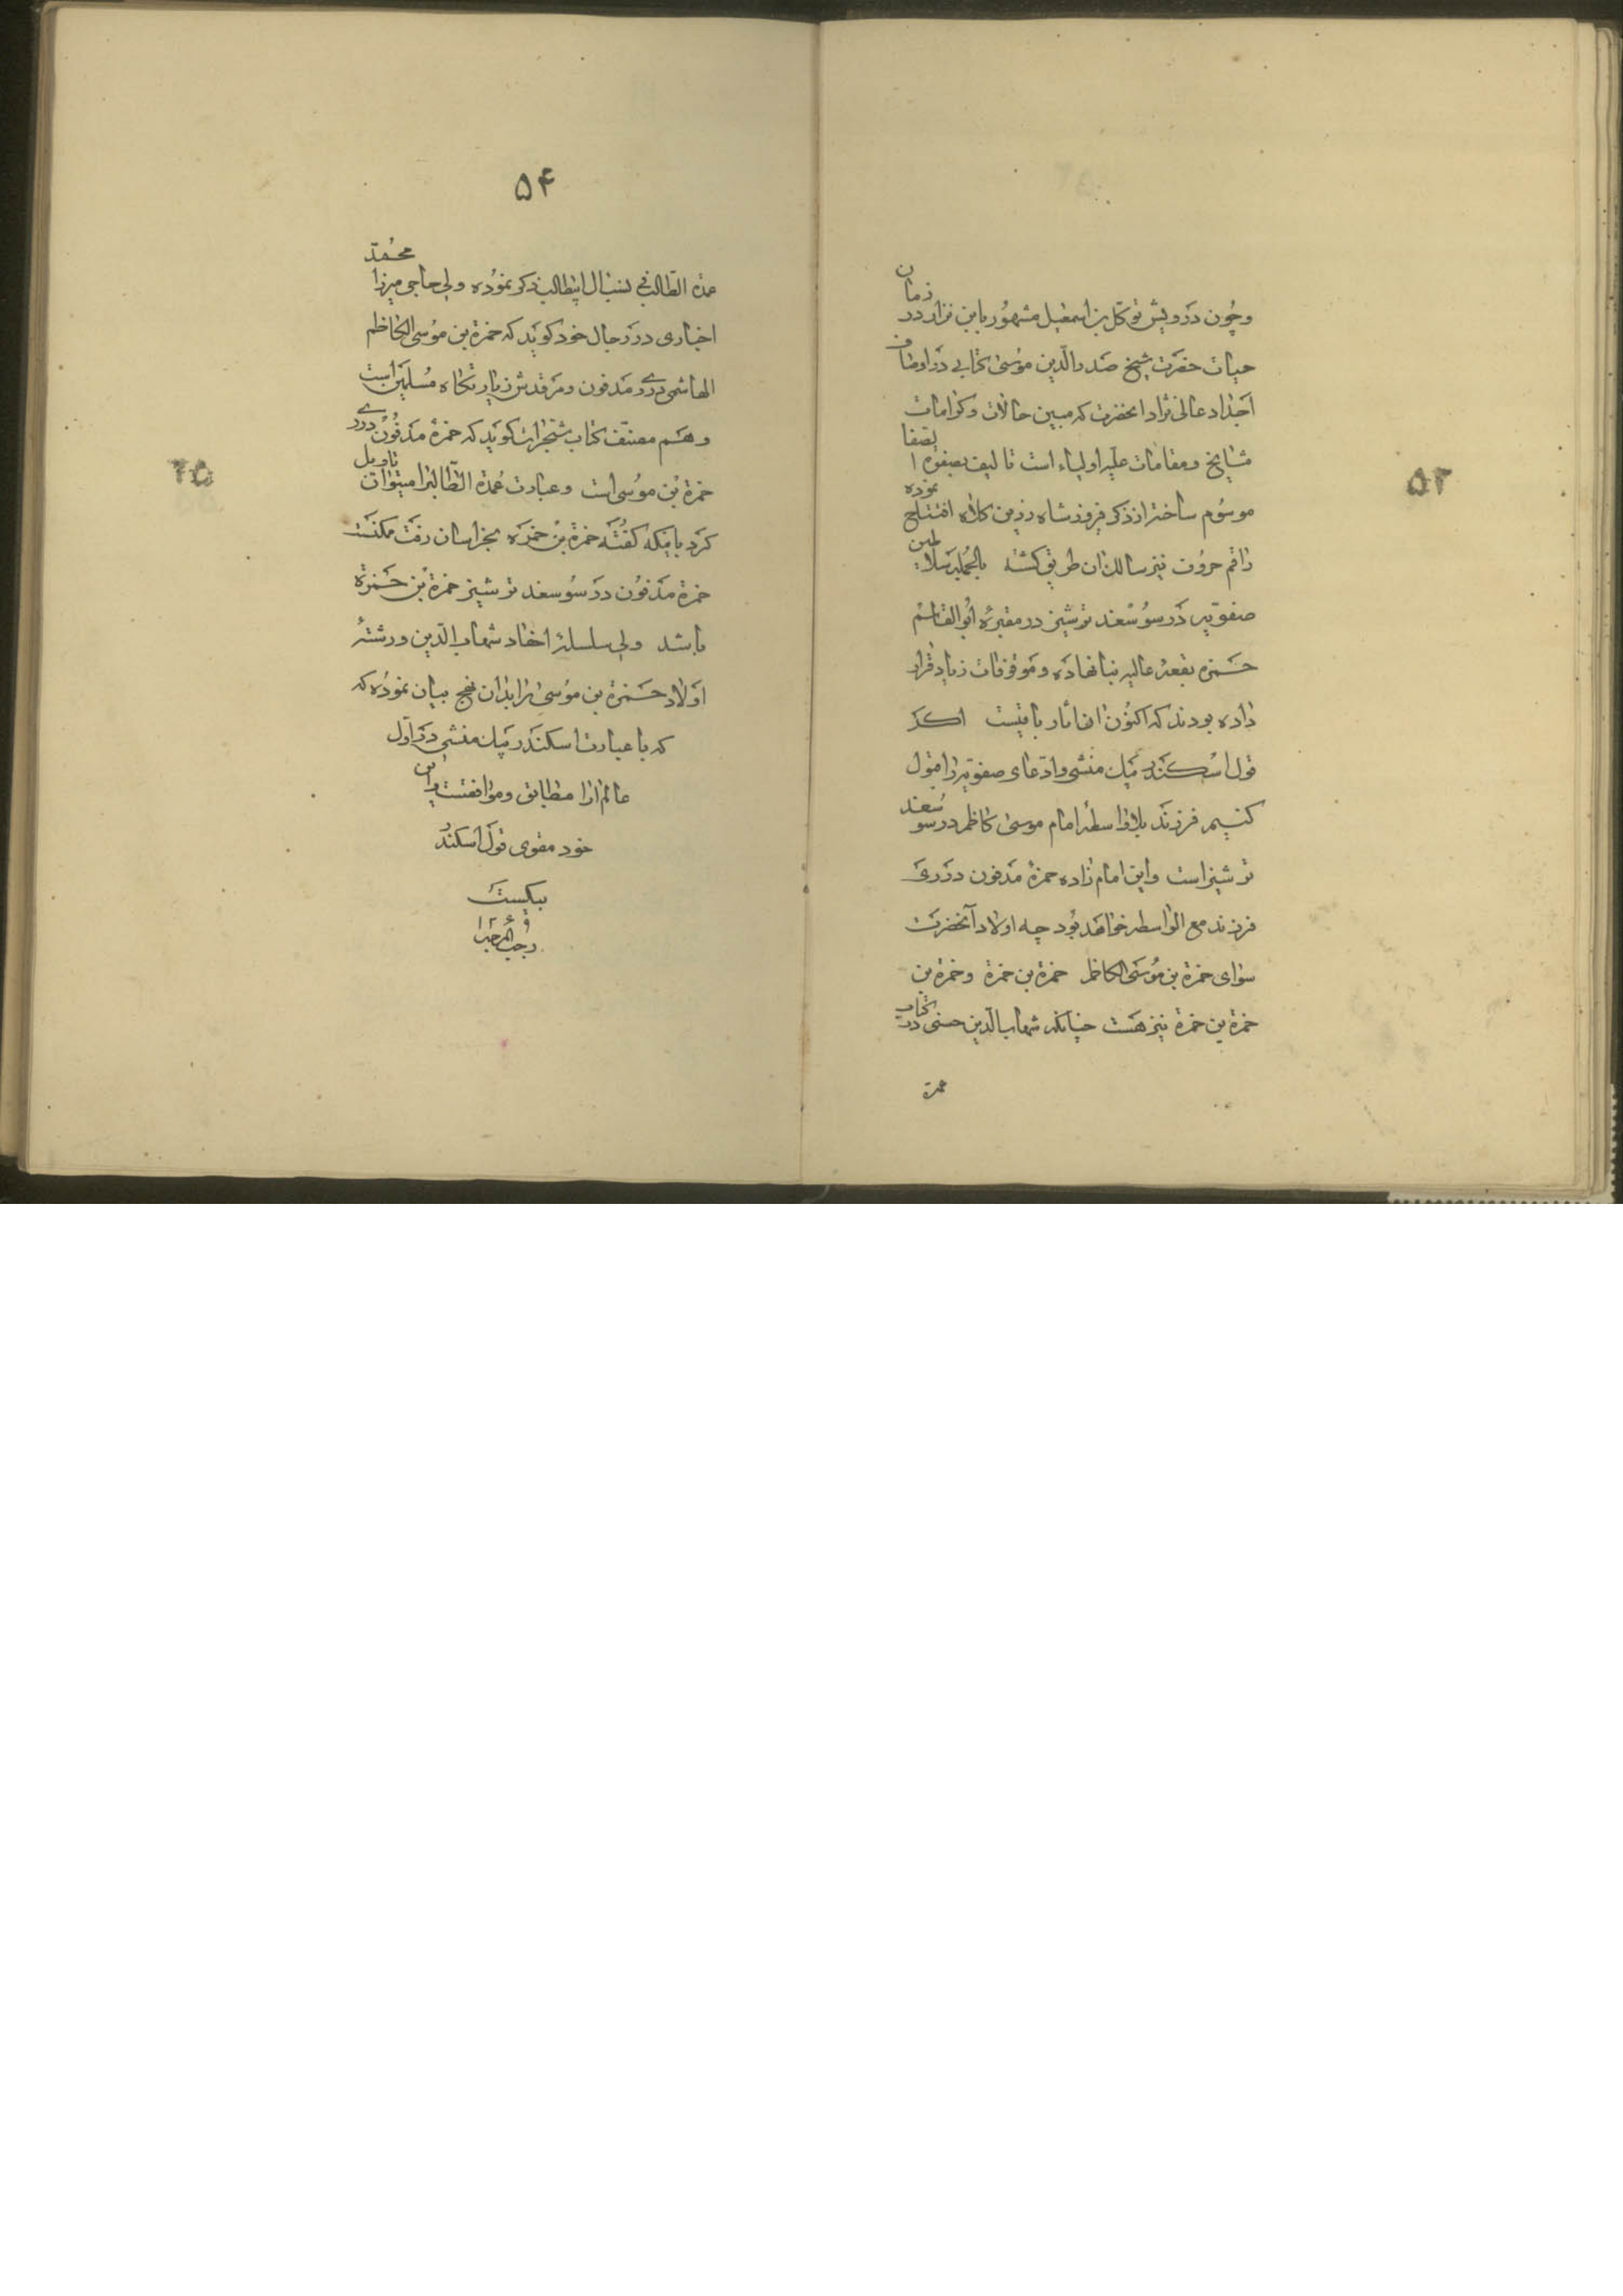 ۵۳
وچون درویش توکل بن اسمعیل مشهور بابن بزاز در زمان
حیات حضرت شیخ صدرالدین موسی کتابی در اوصاف
اجداد عالی نژاد انحضرت که مبین حالات و کرامات
مشایخ و مقامات علیه اولیاء است تالیف بصفوة الصفا
موسوم ساخته از ذکر فیروزشاه زرین کلاه افتتاح نموده
راقم حروف نیز سالك ان طریق کشته بالجمله سلاطین
صفویه در سوسفد ترشیز در مقبرهٔ ابوالقاسم
حمزه بقعهٔ عالیه بنا نهاده و موقوفات زیاد قرار
داده بودند که اکنون ان اثار باقیست اکر
قول اسکندر بیك منشی و ادعای صفویه را قبول
کنیم فرزند بلاواسطهٔ امام موسی کاظم در سوسفد
ترشیز است و این امام زاده حمزهٔ مدفون در ری
فرزند مع الواسطه خواهد بود چه اولاد آنحضرت
سوای حمزة بن موسی الکاظم حمزة بن حمزة و حمزة بن
حمزة بن حمزة نیز هست چنانکه شهاب الدین حسنی در کتاب
عمدة
۵۴
عمدة الطالب فی نسب ال ابیطالب ذکر نموده ولی حاجی میرزا محمد
اخباری در رجال خود کوید که حمزة بن موسی الکاظم
الهاشمی در ری مدفون و مرقدش زیارتکاه مسلمین است
و هم مصنف کتاب شجرات کوید که حمزهٔ مدفون در ری
حمزة بن موسی است و عبارت عمدة الطالب را میتوان تاویل
کرد باینکه کفته حمزة بن حمزه بخراسان رفت ممکنست
حمزة مدفون در سوسفد ترشیز حمزة بن حمزة
باشد ولی سلسلهٔ احفاد شهاب الدین و رشتهٔ
اولاد حمزة بن موسی را بدان نهج بیان نموده که
که با عبارت اسکندر بیك منشی در اول
عالم ارا مطابق و موافقست و این
خود مقوی قول اسکندر
بیکست
فی
رجب المرجب